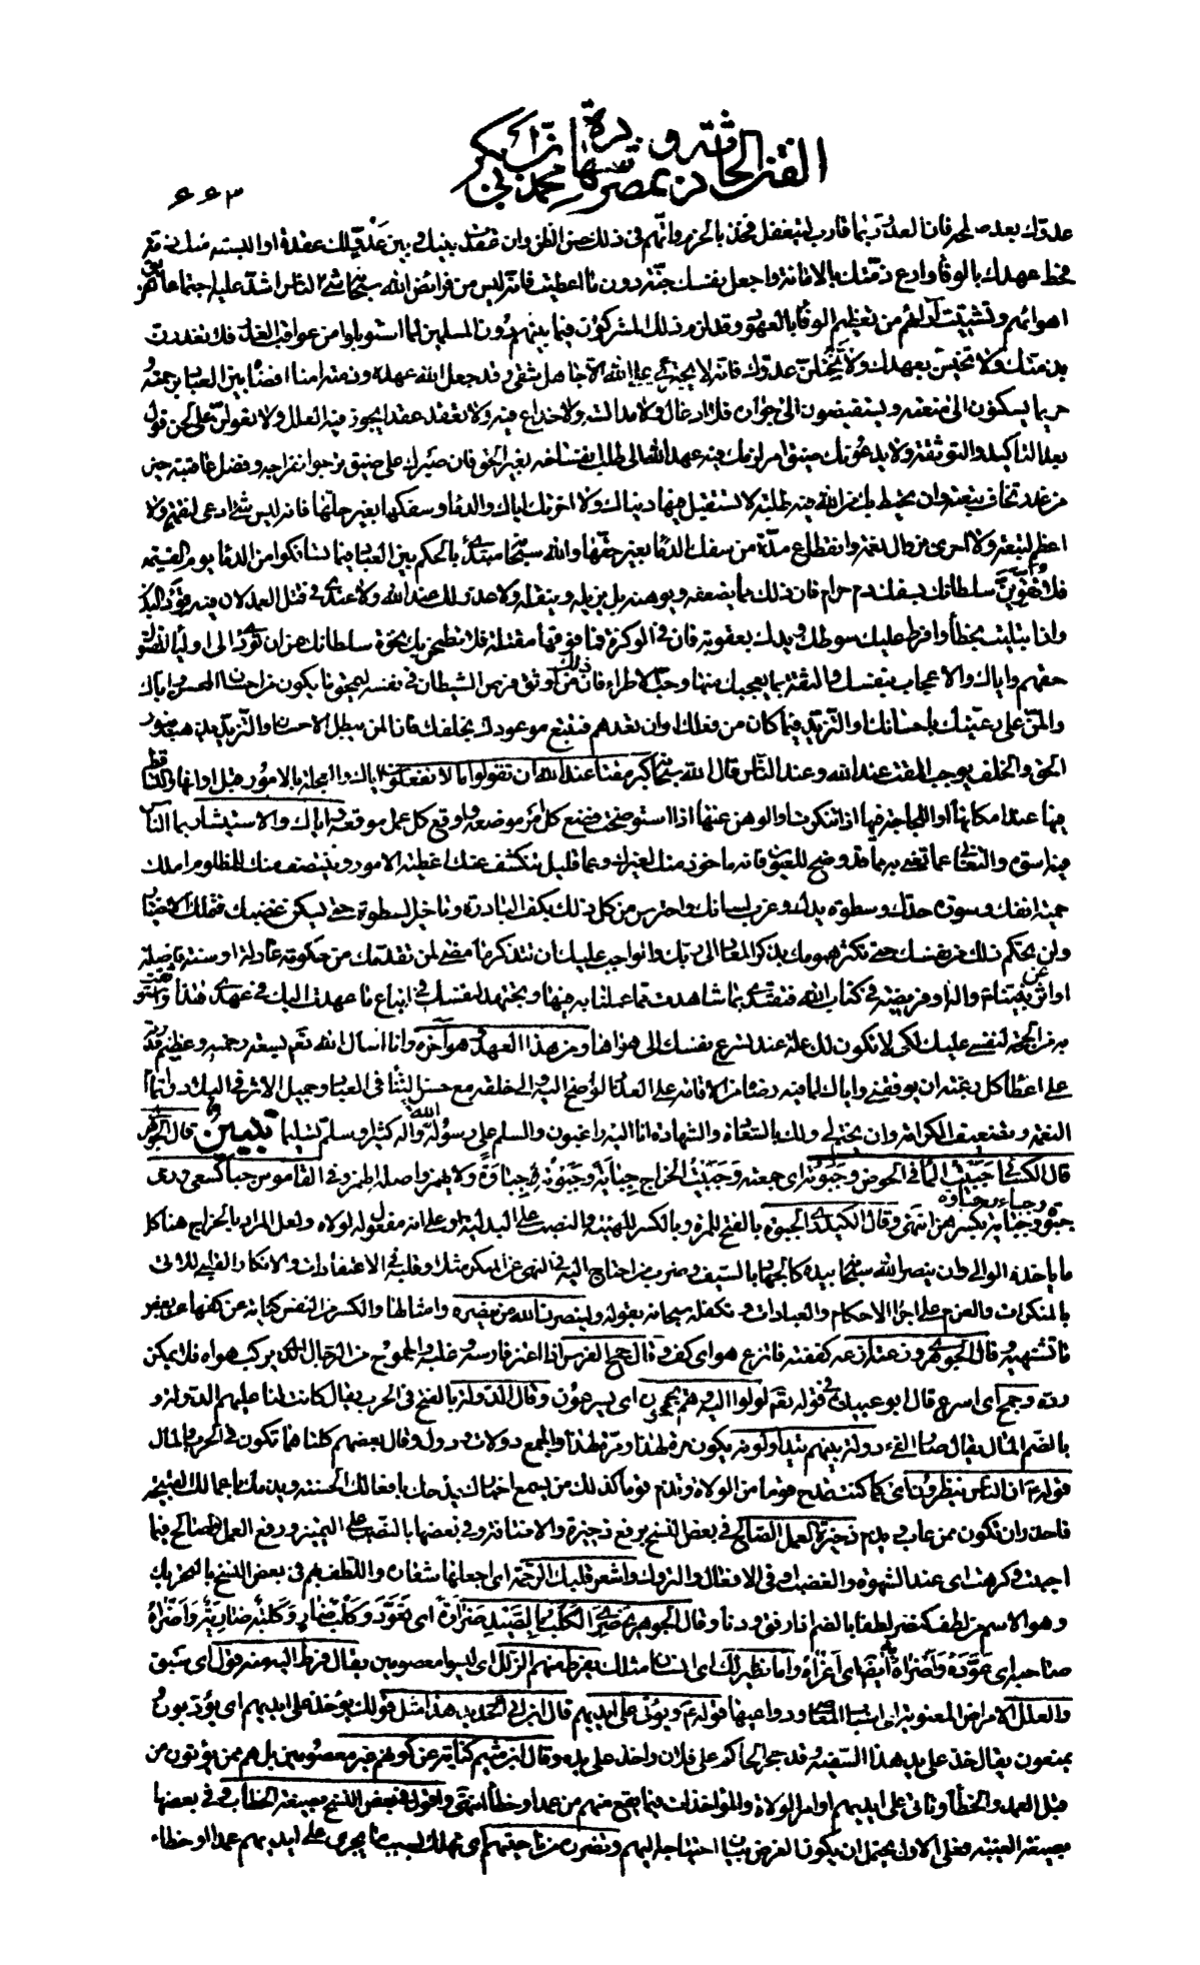 الفتن الحادثة بمصر وشهادة محمد بن أبي بكر
۶۶۳
عدوك بعد صلحه فان العدو ربما قارب ليتغفل فخذ بالحزم واتهم فى ذلك حسن الظن وان عقدت بينك و بين عدو لك عقدة او البسته منك ذمة
فحط عهدك بالوفاء وارع ذمتك بالامانة واجعل نفسك جنة دون ما اعطيت فانه ليس من فرائض الله سبحانه شئ الناس اشد عليه اجتماعا مع تفرق
اهوائهم وتشتيت آرائهم من تعظيم الوفاء بالعهود وقد لزم ذلك المشركون فيما بينهم دون المسلمين لما استوبلوا من عواقب الغدر فلا تغدرن
بذمتك ولا تخيسن بعهدك ولا تختلن عدوك فانه لا يجترئ على الله الا جاهل شقى وقد جعل الله عهده وذمته امنا افضاه بين العباد برحمته و
حريما يسكنون الى منعته ويستفيضون الى جواره فلا ادغال ولا مدالسة ولا خداع فيه ولا تعقد عقدا يجوز فيه العلل ولا تعولن على لحن قول
بعد التأكيد والتوثقة ولا يدعونك ضيق امر لزمك فيه عهد الله الى طلب انفساخه بغير الحق فان صبرك على ضيق ترجو انفراجه وفضل عاقبته خير
من غدر تخاف تبعته وان يحيط بك من الله فيه طلبة لا تستقيل فيها دنياك ولا اخرتك اياك والدماء وسفكها بغير حلها فانه ليس شئ ادعى لنقمة ولا
اعظم لتبعة ولا احرى بزوال نعمة وانقطاع مدة من سفك الدماء بغير حقها والله سبحانه مبتدئ بالحكم بين العباد فيما تسافكوا من الدماء يوم القيمة
فلا تقوين سلطانك بسفك دم حرام فان ذلك مما يضعفه ويوهنه بل يزيله وينقله ولا عذر لك عند الله ولا عندى فى قتل العمد لان فيه قود البدن
وان ابتليت بخطأ وافرط عليك سوطك ويدك بعقوبة فان فى الوكزة فما فوقها مقتلة فلا تطمحن بك نخوة سلطانك عن ان تؤدى الى اولياء المقتول
حقهم واياك والاعجاب بنفسك والثقة بما يعجبك منها وحب الاطراء فان ذلك من اوثق فرص الشيطان فى نفسه ليمحق ما يكون من احسان المحسن واياك
والمن على رعيتك باحسانك والتزيد فيما كان من فعلك وان تعدهم فتتبع موعودك بخلفك فان المن يبطل الاحسان والتزيد يذهب بنور
الحق والخلف يوجب المقت عند الله وعند الناس قال الله سبحانه كبر مقتا عند الله ان تقولوا ما لا تفعلون واياك والعجلة بالامور قبل اوانها والتساقط
فيها عند امكانها او اللجاجة فيها اذا تنكرت او الوهن عنها اذا استوضحت فضع كل امر موضعه واوقع كل عمل موقعه واياك والاستيثار بما الناس
فيه اسوة والتغابى عما تعنى به مما قد وضح للعيون فانه ماخوذ منك لغيرك وعما قليل تنكشف عنك اغطية الامور وينتصف منك للمظلوم املك
حمية انفك وسورة حدك وسطوة يدك وغرب لسانك واحترس من كل ذلك بكف البادرة وتاخير السطوة حتى يسكن غضبك فتملك الاختيار
ولن تحكم ذلك من نفسك حتى تكثر همومك بذكر المعاد الى ربك والواجب عليك ان تتذكر ما مضى لمن تقدمك من حكومة عادلة او سنة فاضلة
او اثر عن نبينا صلى الله عليه وآله او فريضة فى كتاب الله فتقتدى بما شاهدت مما عملنا به فيها وتجتهد لنفسك فى اتباع ما عهدت اليك فى عهدى هذا واستوثقت
به من الحجة لنفسى عليك لكى لا تكون لك علة عند تسرع نفسك الى هواها ومن هذا العهد وهو آخره وانا اسال الله تعم بسعة رحمته وعظيم قدرته
على اعطاء كل رغبة ان يوفقنى واياك لما فيه رضاه من الاقامة على العذر الواضح اليه والى خلقه مع حسن الثناء فى العباد وجميل الاثر فى البلاد وتمام
النعمة وتضعيف الكرامة وان يختم لى ولك بالسعادة والشهادة انا اليه راغبون والسلم على رسول الله وآله كثيرا وسلم تسليما تبيين قال الجوهرى
قال الكسائى جبيت الماء فى الحوض وجبوته اى جمعته وجبيت الخراج جباية وجبوته جباوة ولا يهمز واصله الهمز وفى القاموس جبا كسعى ورمى
جبوة وجباء وجباوة وجباية بكسرهن انتهى وقال الكيدرى الجبوة بالفتح للمرة وبالكسر للهيئة والنصب على البدلية او على انه مفعول له لولاه ولعل المراد بالخراج هنا كل
ما ياخذه الوالى وان ينصر الله سبحانه بيده كالجهاد بالسيف وضرب من احتاج اليه فى النهى عن المنكر مثلا وقلبه فى الاعتقادات والانكار القلبى للاتى
بالمنكرات والعزم على اجراء الاحكام والعبادات وتكفله سبحانه بقوله ولينصرن الله من ينصره وامثالها والكسر من النفس كناية عن كفها عن بعض
ما تشتهيه وقال الجوهرى وزعته ازعه كففته فاتزع هو اى كف وقال جمح الفرس اذا اعتز فارسه وغلبه والجموح من الرجال الذى يركب هواه فلا يمكن
رده وجمح اى اسرع قال ابو عبيدة فى قوله تعم لولوا اليه وهم يجمحون اى يسرعون وقال الدولة بالفتح فى الحرب يقال كانت لنا عليهم الدولة و
بالضم المال يقال صار الفئ دولة بينهم يتداولونه يكون مرة لهذا ومرة لهذا والجمع دولات ودول وقال بعضهم كلتاهما تكون فى الحرب والمال
قوله ع ان الناس ينظرون اى كما كنت تمدح قوما من الولاة وتذم قوما كذلك من يسمع اخبارك يمدحك بافعالك الحسنة ويذمك باعمالك القبيحة
فاحذر ان تكون ممن عاب ويذم ذخيرة العمل الصالح فى بعض النسخ برفع ذخيرة والاضافة وفى بعضها بالنصب على التمييز ورفع العمل الصالح فيما
احببت وكرهت اى عند الشهوة والغضب او فى الافعال والتروك واشعر قلبك الرحمة اى اجعلها شعاره واللطف بهم فى بعض النسخ بالتحريك
وهو الاسم من لطف كنصر لطفا بالضم اذا رفق ودنا وقال الجوهرى ضرى الكلب بالصيد ضراوة اى تعود وكلب ضار وكلبة ضارية واضراه
صاحبه اى عوده واضراه به ايضا اى اغراه واما نظير لك اى انسان مثلك يفرط منهم الزلل اى ليسوا معصومين يقال فرط اليه منه قول اى سبق
والعلل الامراض المعنوية اى اسباب المعاصى ودواعيها قوله ع ويؤتى على ايديهم قال ابن ابى الحديد هذا مثل قولك يؤخذ على ايديهم اى يؤدبون
يمنعون يقال خذ على يد هذا السفيه وقد حجر الحاكم على فلان واخذ على يده وقال ابن ميثم كناية عن كونهم غير معصومين بل هم ممن يؤتون من
قبل العمد والخطأ وتاتى على ايديهم اوامر الولاة والمؤاخذات فيما يقع منهم من عمد او خطأ انتهى واقول فى بعض النسخ بصيغة الخطاب وفى بعضها
بصيغة الغيبة فعلى الاول يحتمل ان يكون الغرض بيان احتياجه اليهم وتضرره من ناحيتهم اى تهلك بسبب ما يجرى على ايديهم عمدا او خطاء